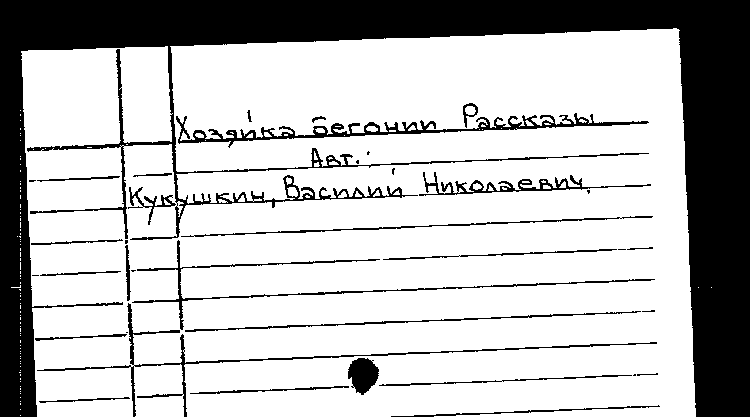 Хозяйка бегонии Рассказы
Авт.:
Кукушкин, Василий Николаевич.